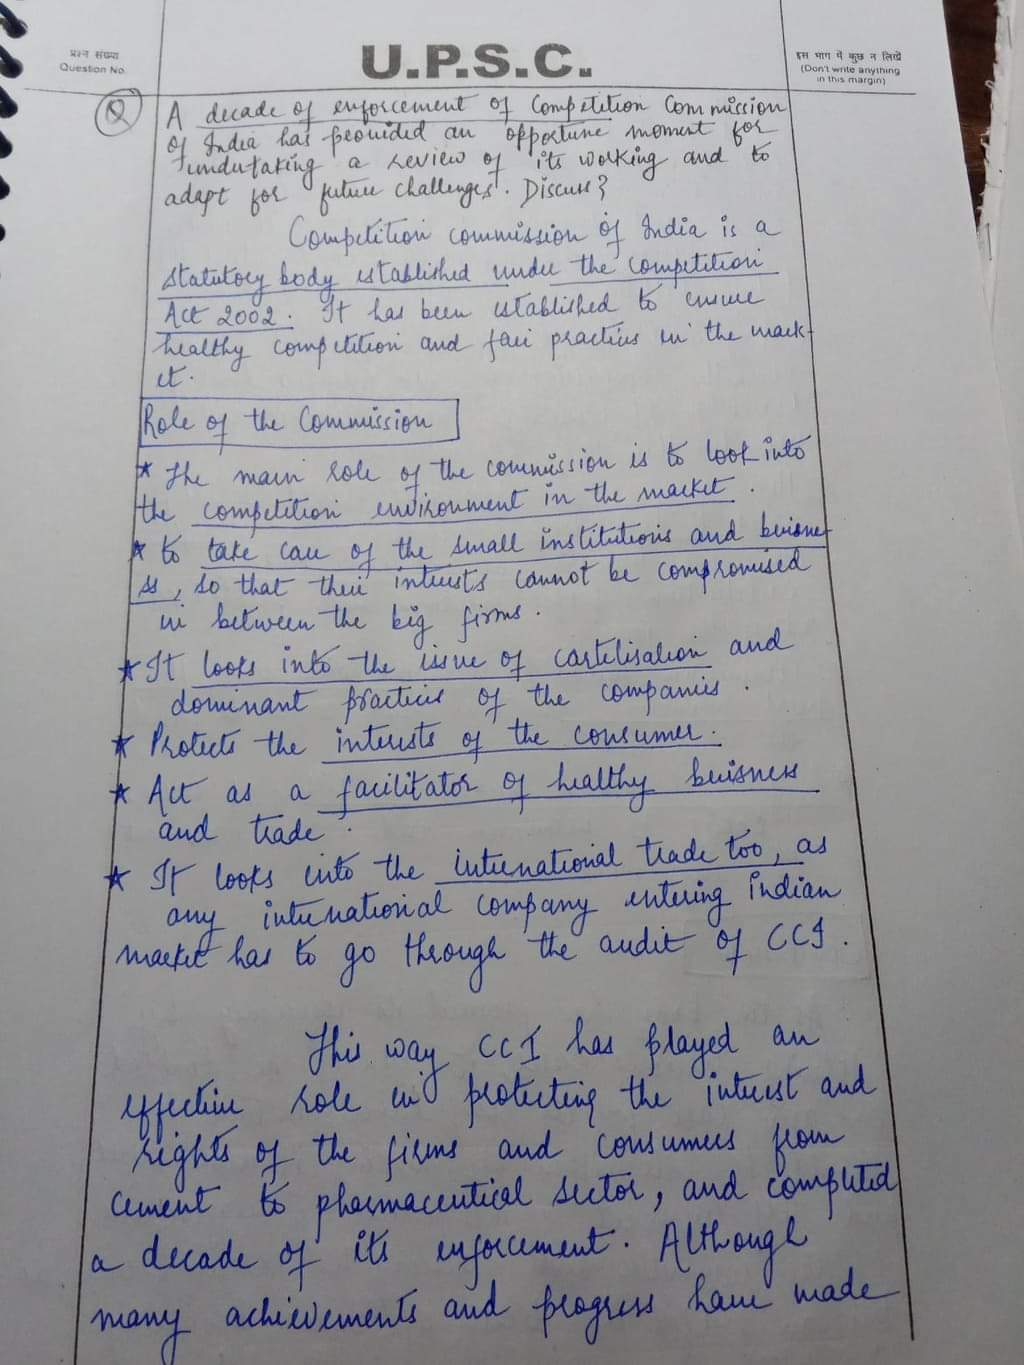 प्रश्न संख्या
Question No.
U.P.S.C.
इस भाग में कुछ न लिखें
(Don't write anything
in this margin)
Q
A decade of enforcement of Competition Commission
of India has provided an opportune moment for
undertaking a review of its working and to
adapt for future challenges. Discuss?
Competition commission of India is a
statutory body established under the competition
Act 2002. It has been established to ensure
healthy competition and fair practices in the mark-
et.
Role of the Commission
* The main role of the commission is to look into
the competition environment in the market.
* to take care of the small institutions and buisne-
ss, so that their interests cannot be compromised
in between the big firms.
* It looks into the issue of cartelisation and
dominant practices of the companies.
* Protects the interests of the consumer.
* Act as a facilitator of healthy buisness
and trade.
* It looks into the international trade too, as
any international company entering indian
market has to go through the audit of CCI.
This way CCI has played an
effective role in protecting the interest and
rights of the firms and consumers from
cement to pharmaceutical sector, and completed
a decade of its enforcement. Although
many achievements and progress have made